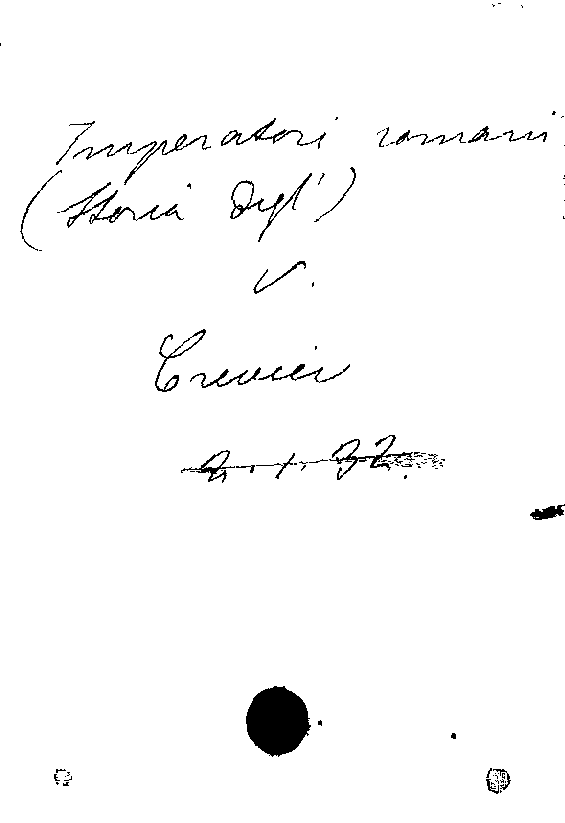 Imperatori romani
(Storia degl')
v.
Crevier
2.1.32.